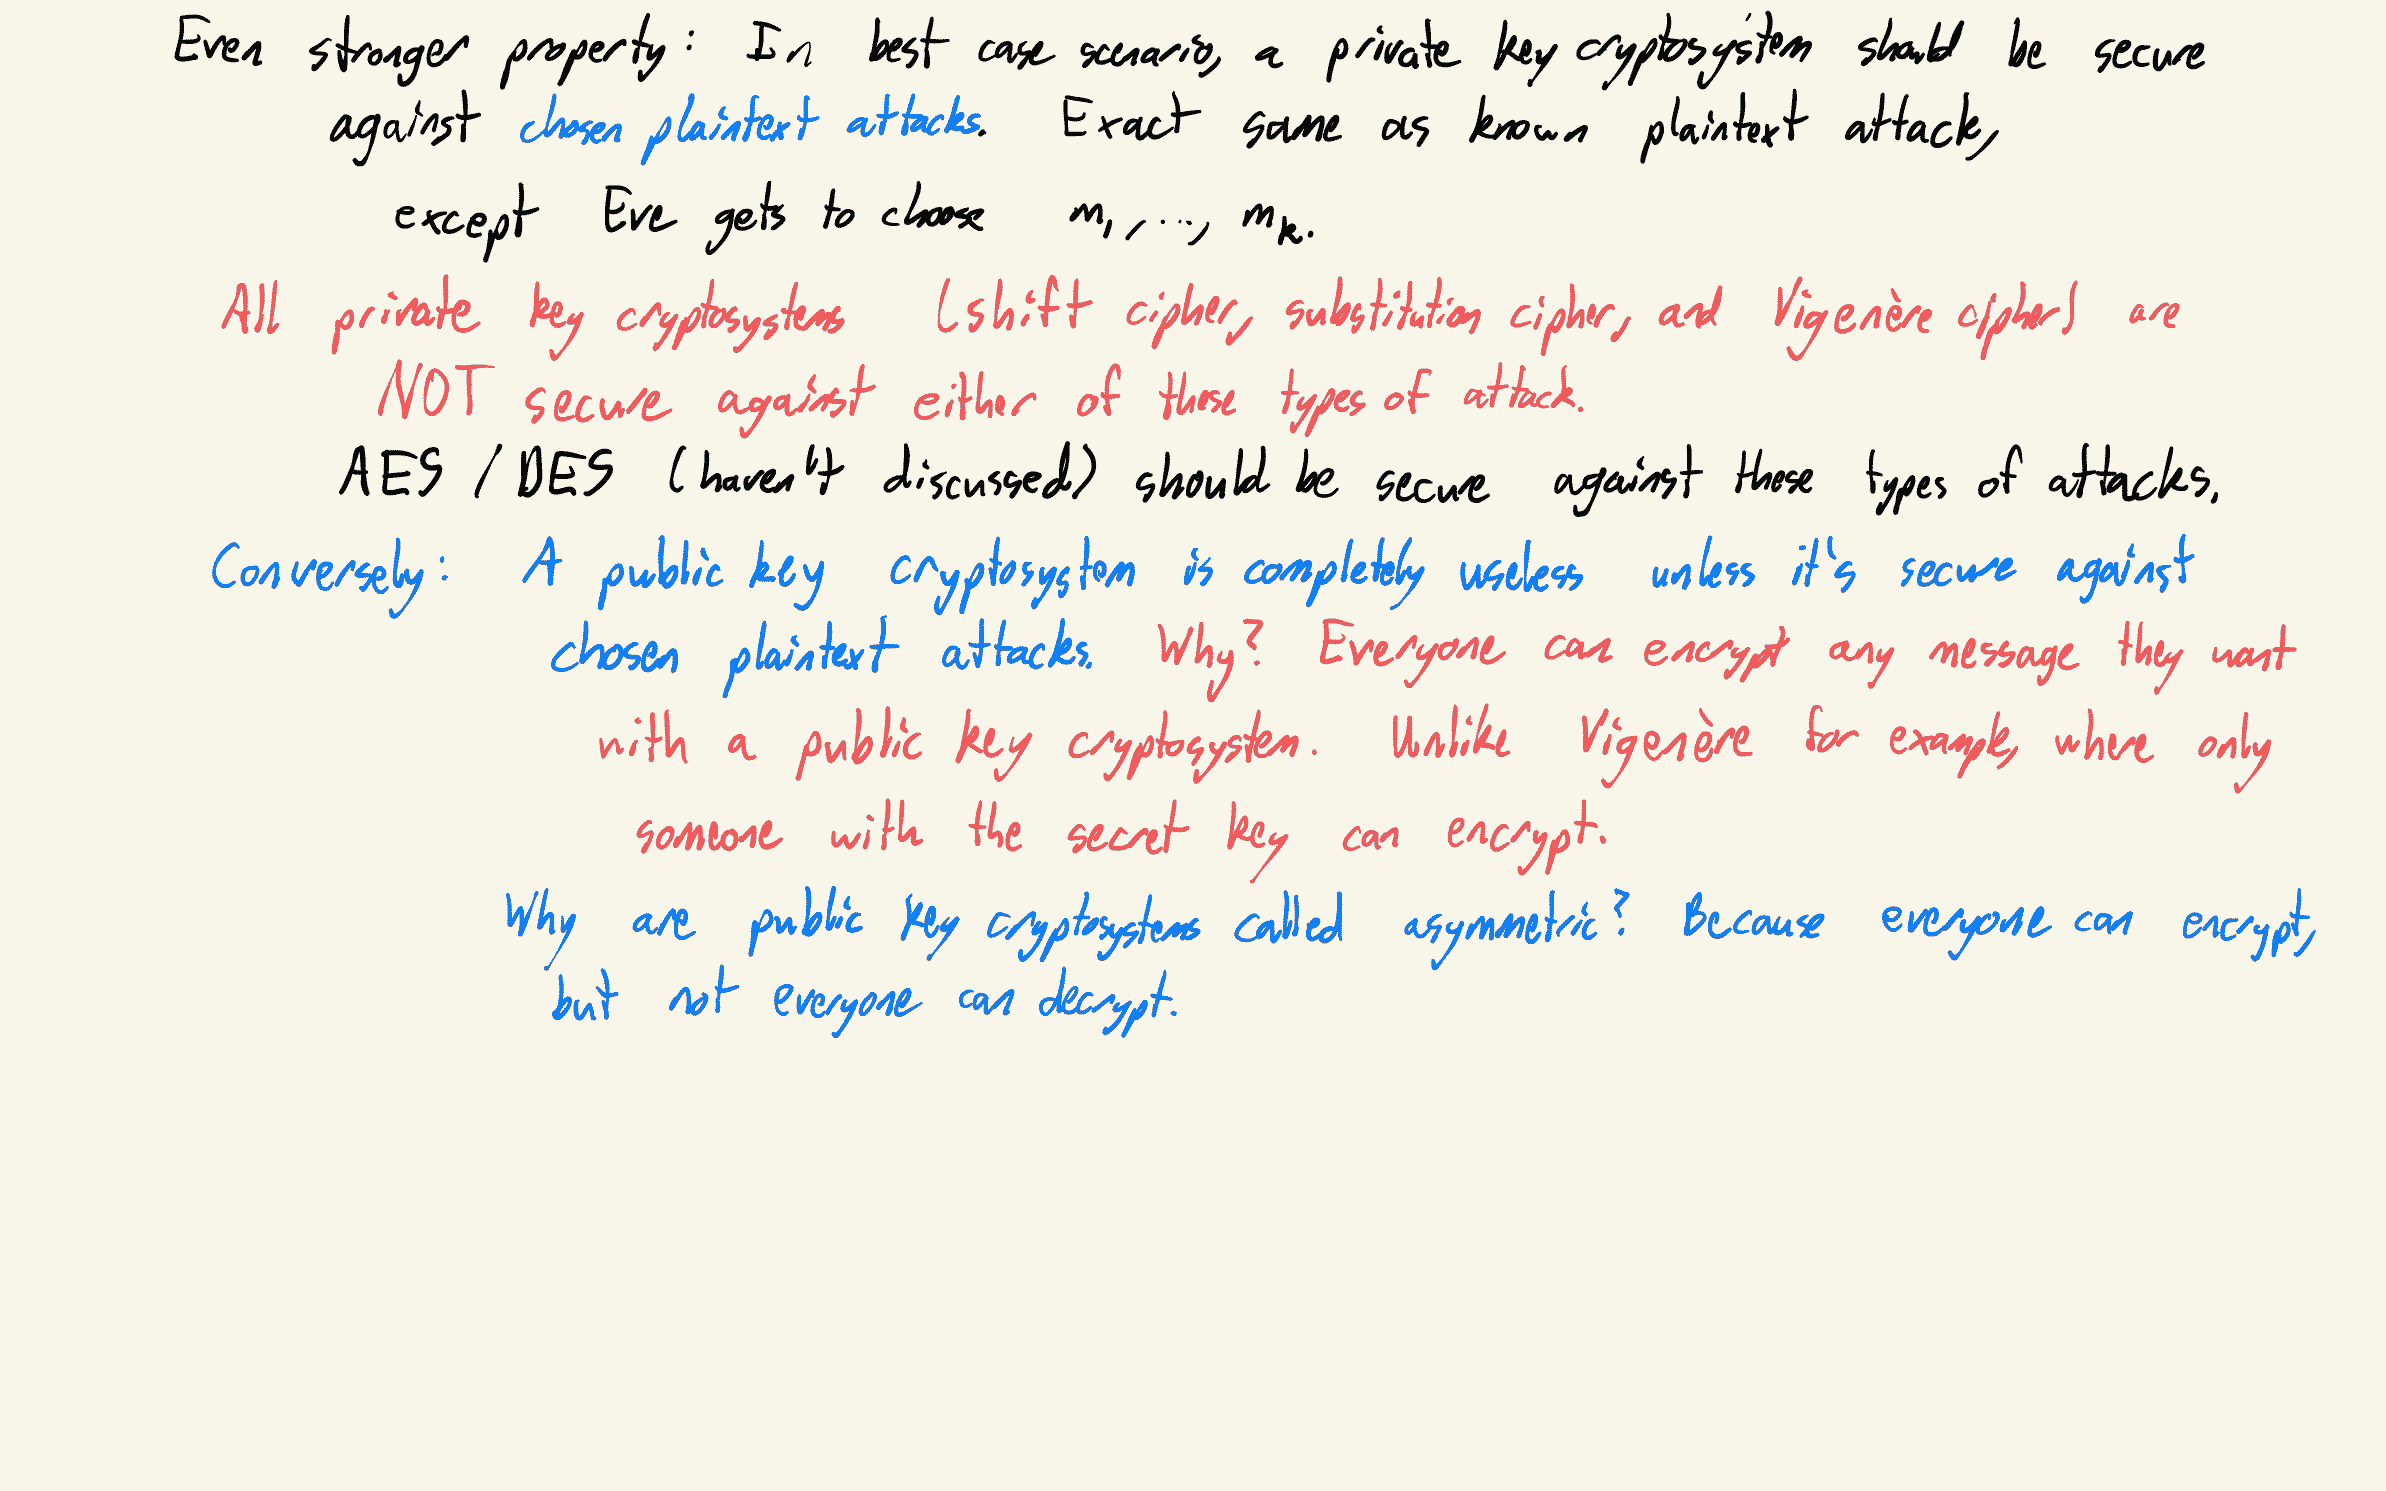 Even stronger property: In best case scenario, a private key cryptosystem should be secure
against chosen plaintext attacks. Exact same as known plaintext attack,
except Eve gets to choose m₁,..., mₖ.
All private key cryptosystems (shift cipher, substitution cipher, and Vigenère cipher) are
NOT secure against either of these types of attack.
AES / DES (haven't discussed) should be secure against these types of attacks.
Conversely: A public key cryptosystem is completely useless unless it's secure against
chosen plaintext attacks. Why? Everyone can encrypt any message they want
with a public key cryptosystem. Unlike Vigenère for example, where only
someone with the secret key can encrypt.
Why are public key cryptosystems called asymmetric? Because everyone can encrypt,
but not everyone can decrypt.